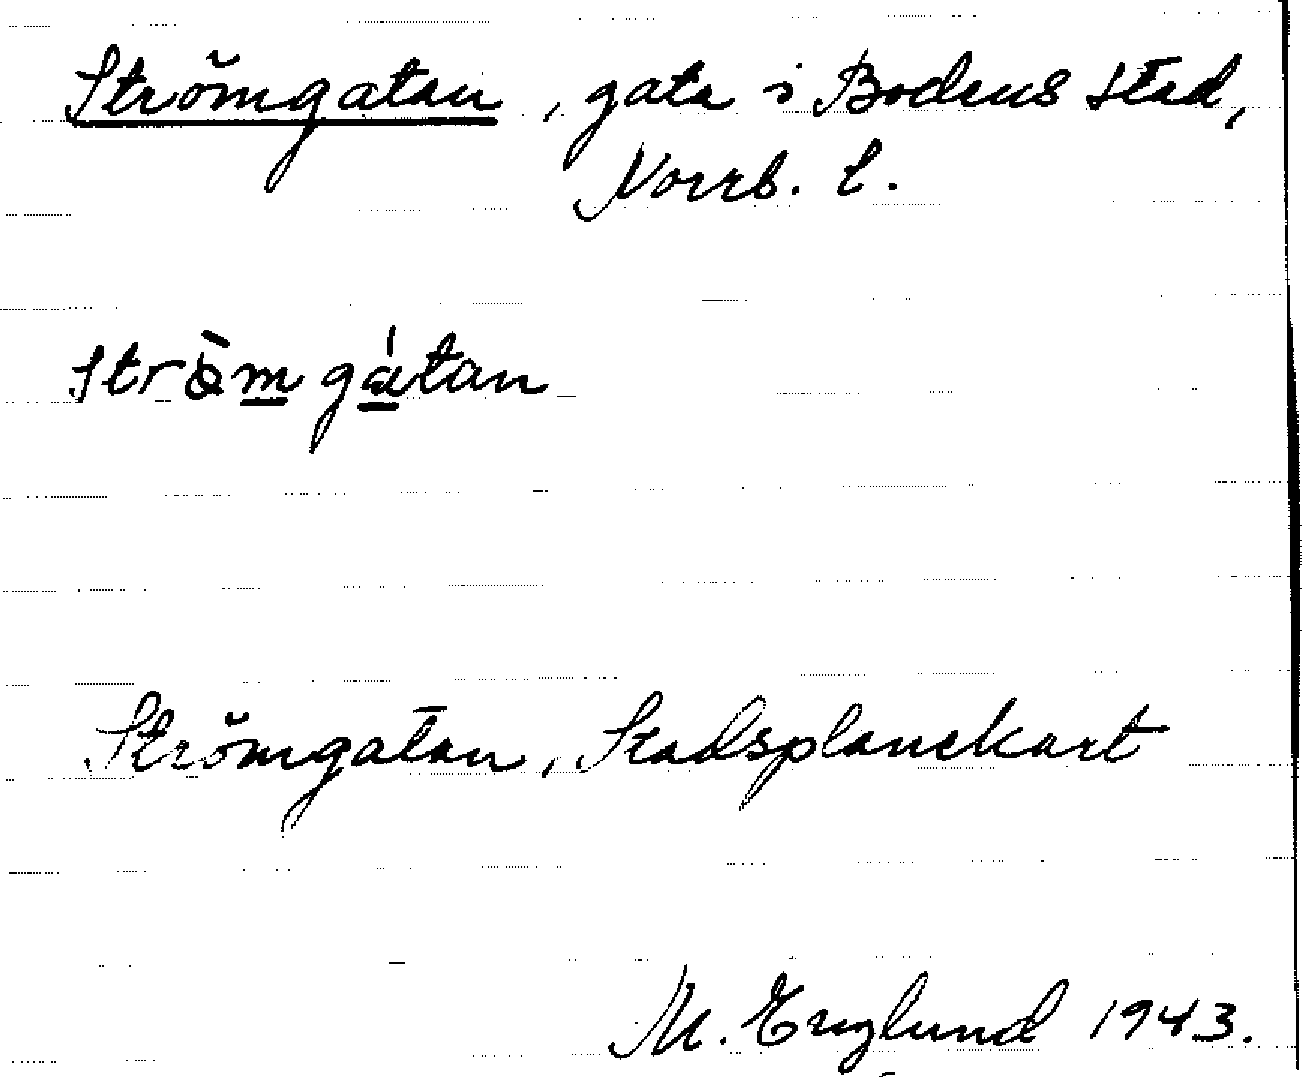 Strömgatan, gata i Bodens stad,
Norrb. l.
Strömgatan
Strömgatan, Stadsplanekart
M. Englund 1943.